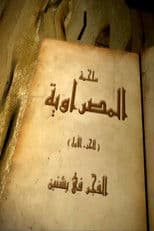 ملحمة
المصراوية
(الجزء الأول)
الفجر في بشنين